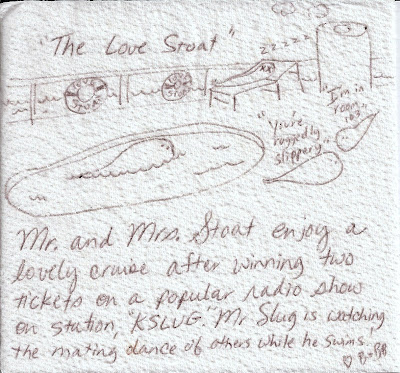 "The Love Stoat"
zzzzz
LOVE STOAT
LOVE STOAT
"I'm in room 103"
"You're ruggedly slippery"
Mr. and Mrs. Stoat enjoy a
lovely cruise after winning two
tickets on a popular radio show
on station, "KSLUG." Mr. Slug is watching
the mating dance of others while he swims.